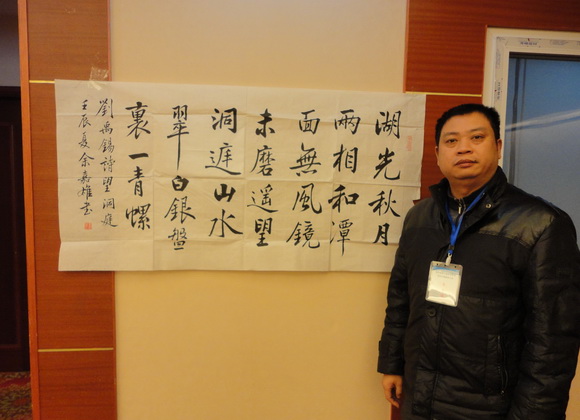 湖光秋月
兩相和潭
面無風鏡
未磨遥望
洞庭山水
翠白銀盤
裏一青螺
劉禹錫詩望洞庭
壬辰夏余嘉雄书